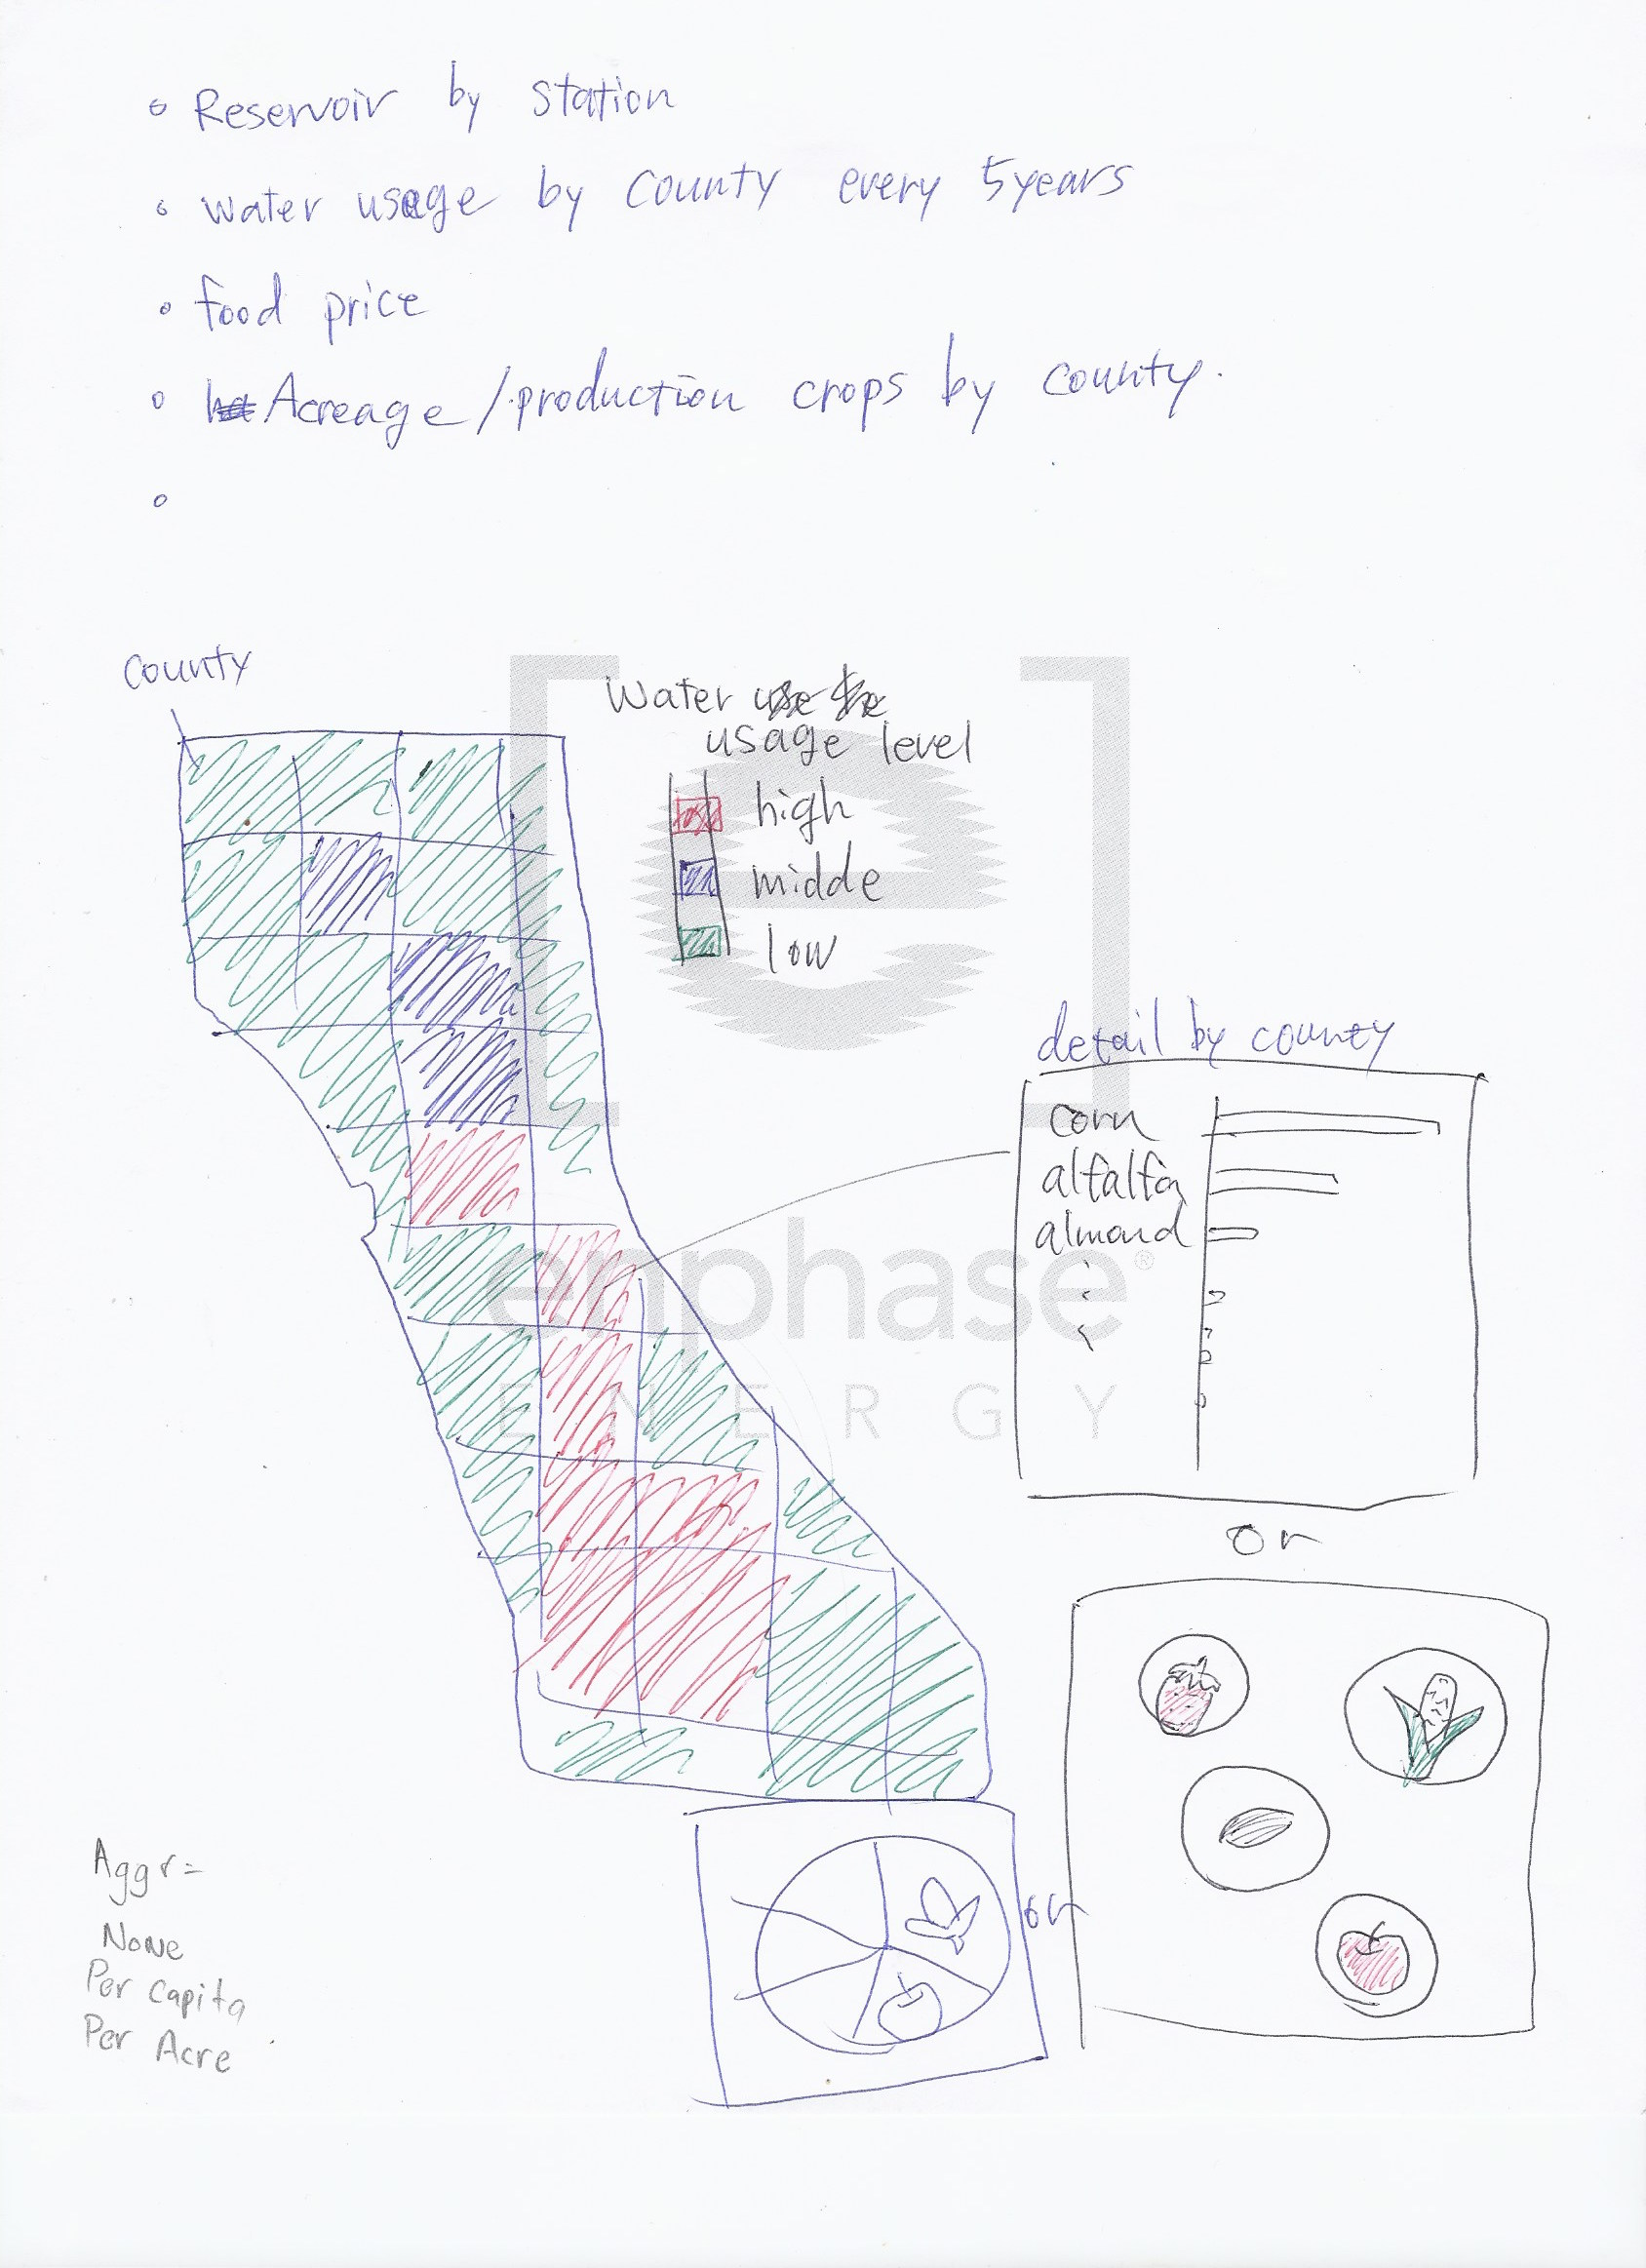 Reservoir by station
water usage by county every 5years
food price
Acreage/production crops by county.
county
Water
usage level
high
midde
low
detail by county
corn
alfalfa
almond
or
or
Aggr=
None
Per capita
Per Acre
[e]
enphase®
ENERGY